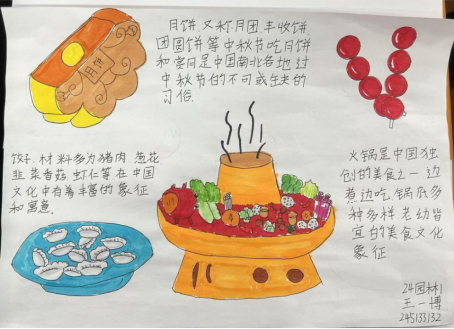 月饼
月饼,又称月团、丰收饼、
团圆饼等中秋节吃月饼
和赏月是中国南北各地过
中秋节的不可或缺的
习俗.
饺子.材料多为猪肉.葱花
韭菜香菇.虾仁等在中国
文化中有着丰富的象征
和寓意.
火锅是中国独
创的美食之一边
煮边吃.锅底多
种多样老幼皆
宜的美食文化
象征
24园林1
王一博
245133132